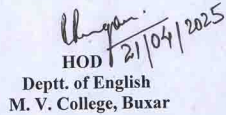 21/04/2025
HOD
Deptt. of English
M. V. College, Buxar